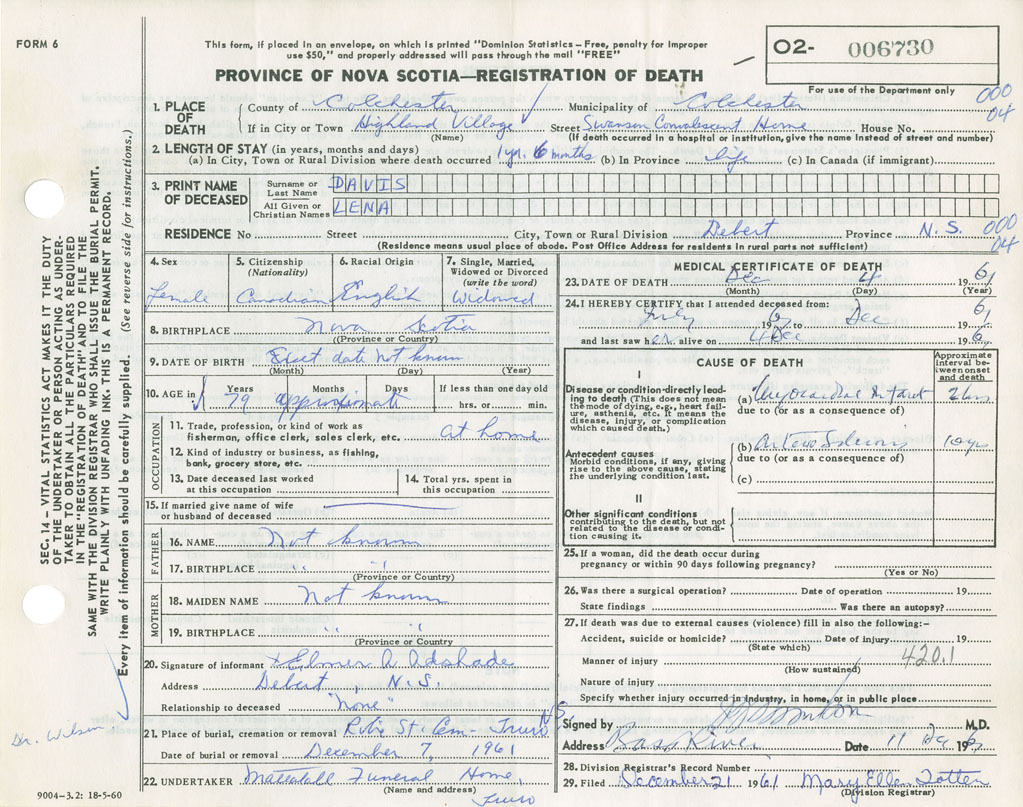 FORM 6
This form, if placed in an envelope, on which is printed "Dominion Statistics – Free, penalty for improper
use $50," and properly addressed will pass through the mail "FREE"
02- 006730
PROVINCE OF NOVA SCOTIA—REGISTRATION OF DEATH
For use of the Department only
000
04
1. PLACE OF DEATH
County of Colchester Municipality of Colchester
If in City or Town Highland Village Street Swanson Convalescent Home House No.
(Name) (If death occurred in a hospital or institution, give the name instead of street and number)
2. LENGTH OF STAY (in years, months and days)
(a) In City, Town or Rural Division where death occurred 1 yr. 6 months (b) In Province life (c) In Canada (if immigrant)
3. PRINT NAME OF DECEASED
Surname or Last Name DAVIS
All Given or Christian Names LENA
RESIDENCE No. Street City, Town or Rural Division Debert Province N.S. 000
04
(Residence means usual place of abode. Post Office Address for residents in rural parts not sufficient)
4. Sex
Female
5. Citizenship (Nationality)
Canadian
6. Racial Origin
English
7. Single, Married, Widowed or Divorced (write the word)
Widowed
8. BIRTHPLACE Nova Scotia
(Province or Country)
9. DATE OF BIRTH Exact date not known
(Month) (Day) (Year)
10. AGE in Years Months Days If less than one day old
79 approximate hrs. or min.
OCCUPATION
11. Trade, profession, or kind of work as
fisherman, office clerk, sales clerk, etc. at home
12. Kind of industry or business, as fishing,
bank, grocery store, etc.
13. Date deceased last worked
at this occupation
14. Total yrs. spent in
this occupation
15. If married give name of wife
or husband of deceased
FATHER
16. NAME Not known
17. BIRTHPLACE " "
(Province or Country)
MOTHER
18. MAIDEN NAME Not known
19. BIRTHPLACE " "
(Province or Country
20. Signature of informant x Elmer A Adshade
Address Debert, N.S.
Relationship to deceased "none"
21. Place of burial, cremation or removal Robie St. Cem - Truro NS
Date of burial or removal December 7, 1961
22. UNDERTAKER Mattatall Funeral Home,
(Name and address)
Truro
9004-3.2: 18-5-60
MEDICAL CERTIFICATE OF DEATH
23. DATE OF DEATH Dec 4 1961
(Month) (Day) (Year)
24. I HEREBY CERTIFY that I attended deceased from:
July 19 to Dec 1961
and last saw her alive on 4 Dec 196
CAUSE OF DEATH
Approximate interval between onset and death
I
Disease or condition directly leading to death (This does not mean
the mode of dying, e.g., heart failure, asthenia, etc. It means the
disease, injury, or complication
which caused death.)
(a) Myocardial Infarct 2 hrs
due to (or as a consequence of)
Antecedent causes
Morbid conditions, if any, giving
rise to the above cause, stating
the underlying condition last.
(b) 10 yrs
due to (or as a consequence of)
(c)
II
Other significant conditions
contributing to the death, but not
related to the disease or condition causing it.
25. If a woman, did the death occur during
pregnancy or within 90 days following pregnancy?
(Yes or No)
26. Was there a surgical operation? Date of operation 19
State findings Was there an autopsy?
27. If death was due to external causes (violence) fill in also the following:-
Accident, suicide or homicide? Date of injury 19
(State which)
420.1
Manner of injury
(How sustained)
Nature of injury
Specify whether injury occurred in industry, in home, or in public place
Signed by M.D.
Address Bass River Date 11 Dec 196
28. Division Registrar's Record Number
29. Filed December 21 1961 Mary Ellen Totten
(Division Registrar)
SEC. 14 – VITAL STATISTICS ACT MAKES IT THE DUTY
OF THE UNDERTAKER OR PERSON ACTING AS UNDERTAKER TO OBTAIN ALL THE PARTICULARS REQUIRED
IN THE "REGISTRATION OF DEATH" AND TO FILE THE
SAME WITH THE DIVISION REGISTRAR WHO SHALL ISSUE THE BURIAL PERMIT.
WRITE PLAINLY WITH UNFADING INK. THIS IS A PERMANENT RECORD.
Every item of information should be carefully supplied. (See reverse side for instructions.)
Dr. Wilson